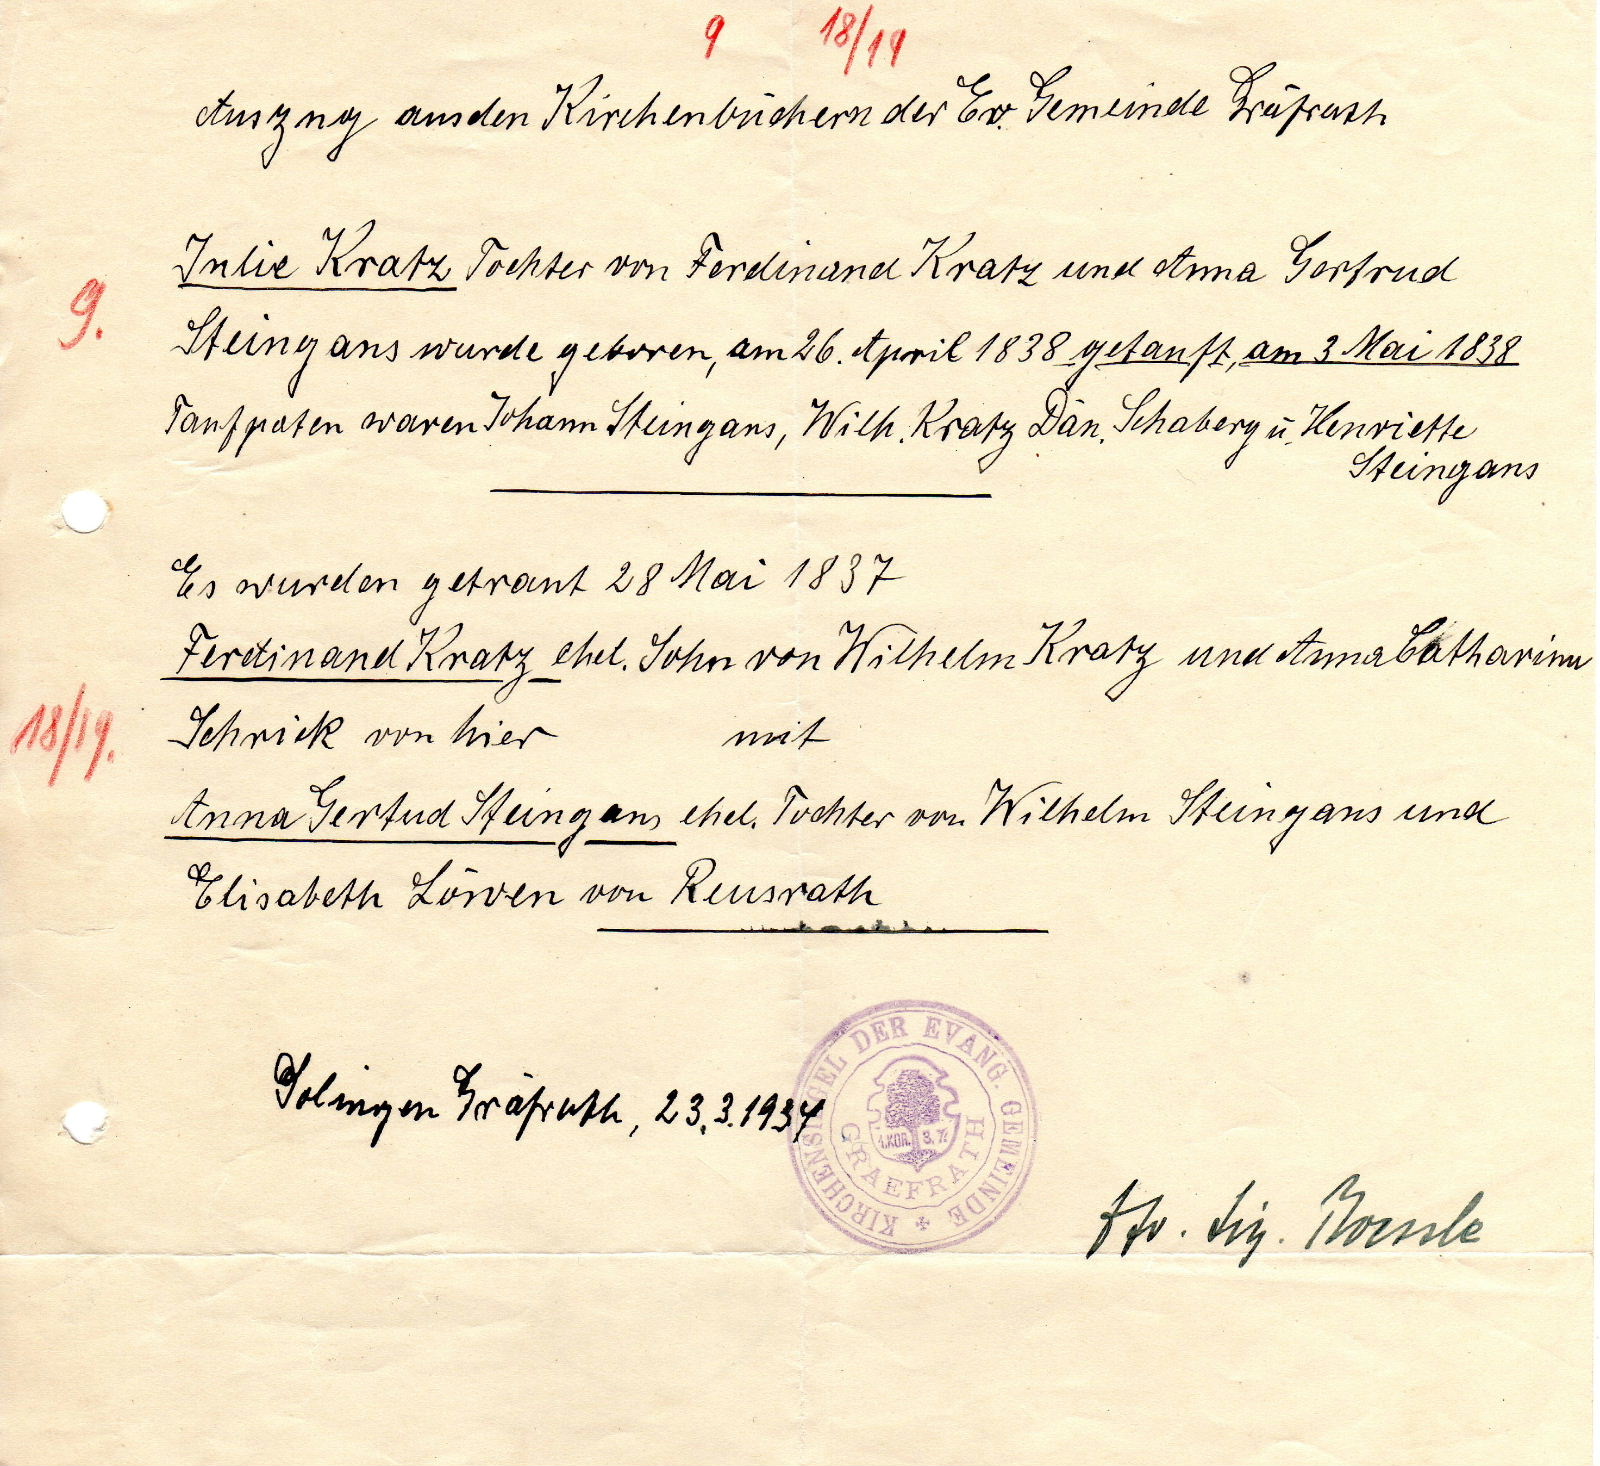 9 18/19
Auszug aus den Kirchenbüchern der Ev. Gemeinde Gräfrath
9.
Julie Kratz Tochter von Ferdinand Kratz und Anna Gertrud
Steingans wurde geboren, am 26. April 1838 getauft, am 3 Mai 1838
Taufpaten waren Johann Steingans, Wilh. Kratz Dan. Schaberg u. Henriette
Steingans
Es wurden getraut 28 Mai 1837
Ferdinand Kratz ehel. Sohn von Wilhelm Kratz und Anna Catharina
18/19.
Schrick von hier mit
Anna Gertud Steingans ehel. Tochter von Wilhelm Steingans und
Elisabeth Löwen von Reusrath
Solingen Gräfrath, 23.3.1934
KIRCHENSIEGEL DER EVANG. GEMEINDE
GRAEFRATH
1.KOR. 3.7.